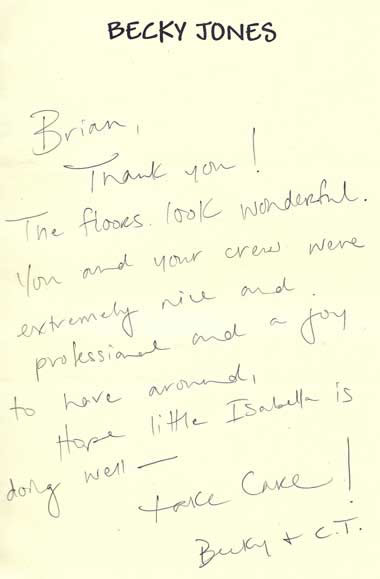 BECKY JONES
Brian,
Thank you!
The floors look wonderful.
You and your crew were
extremely nice and
professional and a joy
to have around.
Hope little Isabella is
doing well —
take Care!
Becky + C.T.